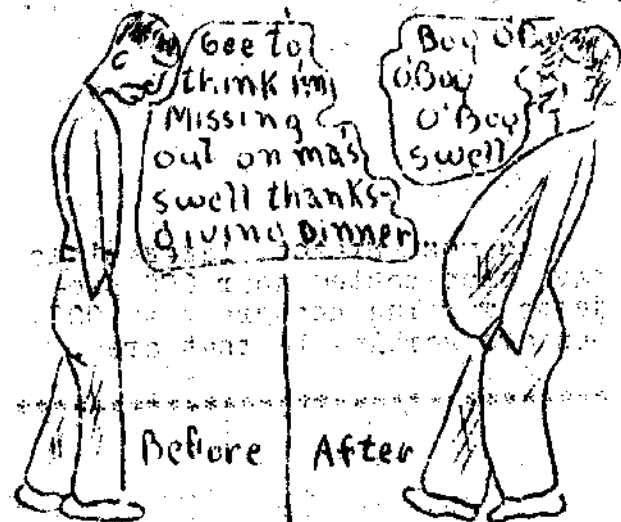 Gee to
think im
Missing
out on ma's
swell thanks-
giving Dinner..
Boy O'Boy
O'Boy
O'Boy
swell
Before
After